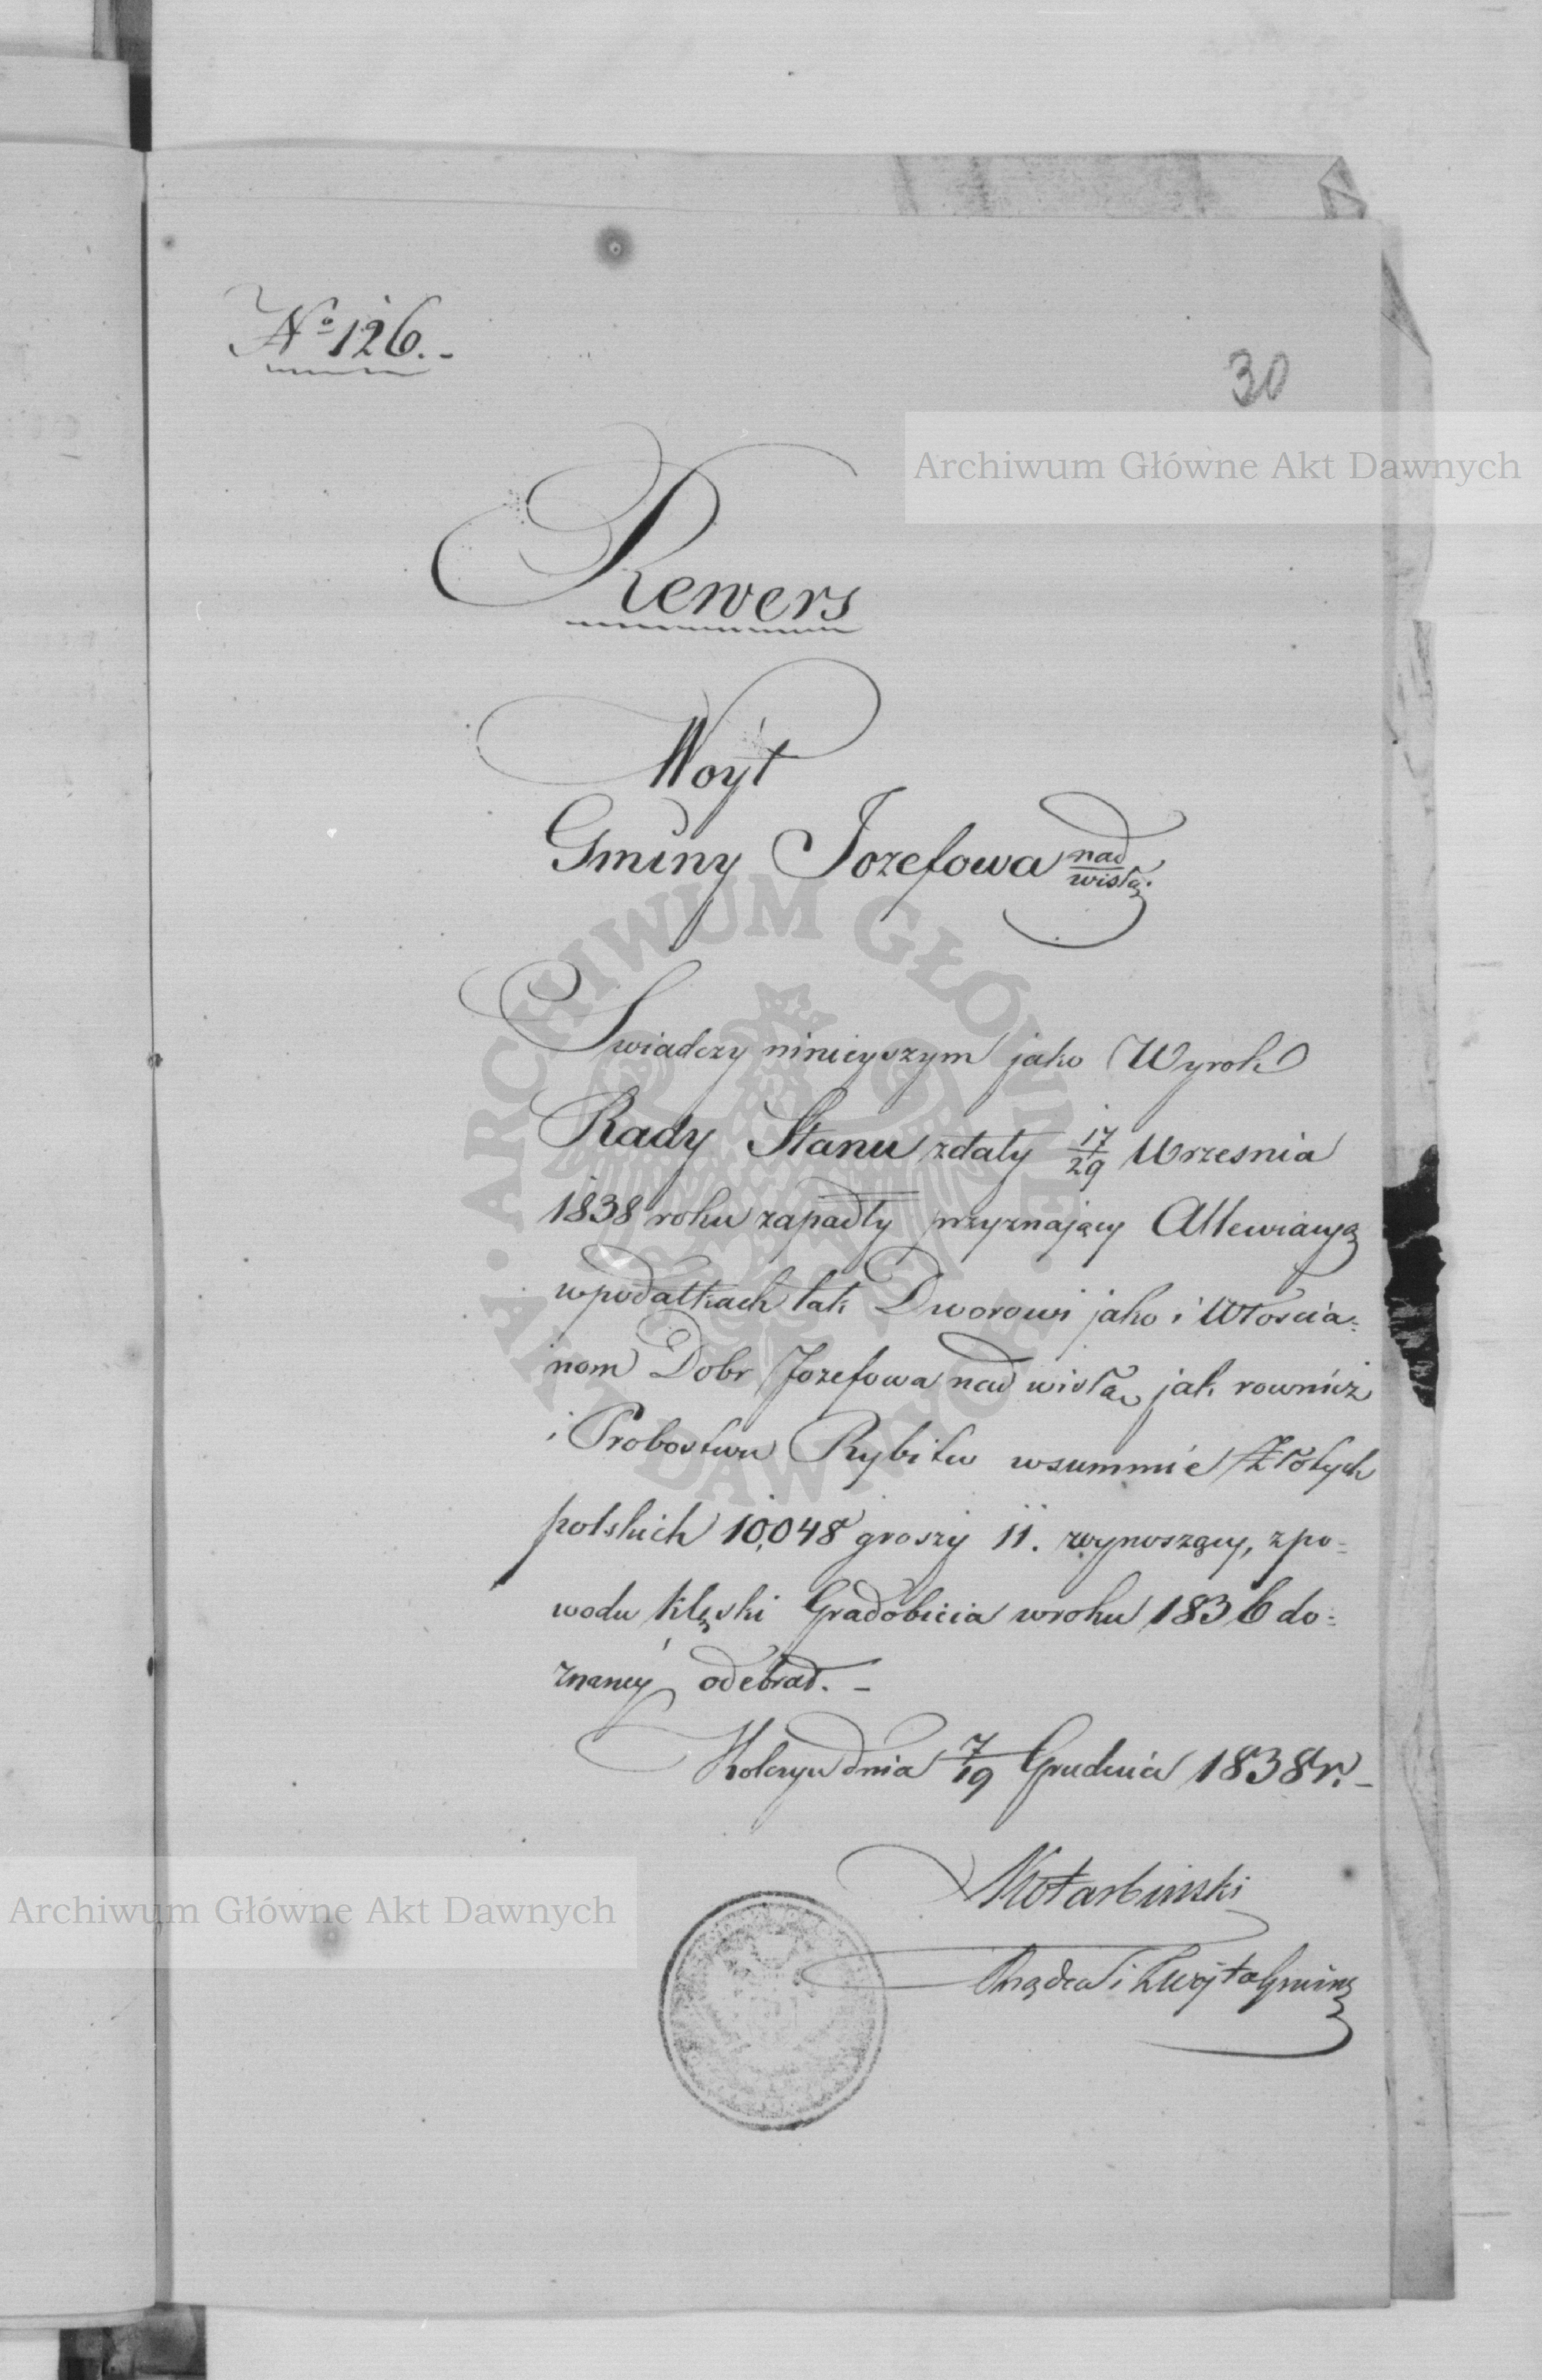 No 126.-
30
Archiwum Główne Akt Dawnych
Rewers
Woyt
Gminy Jozefowa nad wisłą.
Swiadczy ninieyszym jako Wyrok
Rady Stanu zdaty 17/29 Wrzesnia
1838 roku zapadły przyznający Allewiacyą
wpodatkach tak Dworowi jako i Włoscia=
nom Dobr Jozefowa nad wisłą jak rownież
i Probostwu Rybitw wsummie Złotych
polskich 10,048 groszy 11. wynoszący, zpo=
wodu klęski Gradobicia wroku 1836 do=
znaney odebrał. -
dnia 7/19 Grudnia 1838 r. -
Kotarbinski
Rządca i Zwójta Gminy
Archiwum Główne Akt Dawnych
ARCHIWUM GŁÓWNE AKT DAWNYCH